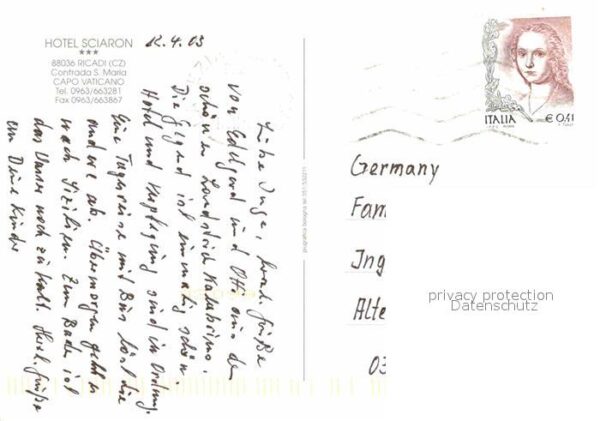 HOTEL SCIARON
★★★
88036 RICADI (CZ)
Contrada S. Maria
CAPO VATICANO
Tel. 0963/663281
Fax 0963/663867
12.4.03
Liebe Inge, liebe Grüße
von Edelgard und Otto aus dem
schönen Landstrich Kalabrismo.
Die Gegend ist einmalig schön
Hotel und Verpflegung sind in Ordnung.
Eine Tagesreise mit Bus löst die
andere ab. Übermorgen geht's
nach Sizilien. Zum Baden ist
das Wasser noch zu kalt. Herzl. Grüße
an Deine Kinder
ITALIA
€ 0,41
Germany
Fam
Ing
Alte
03
privacy protection
Datenschutz